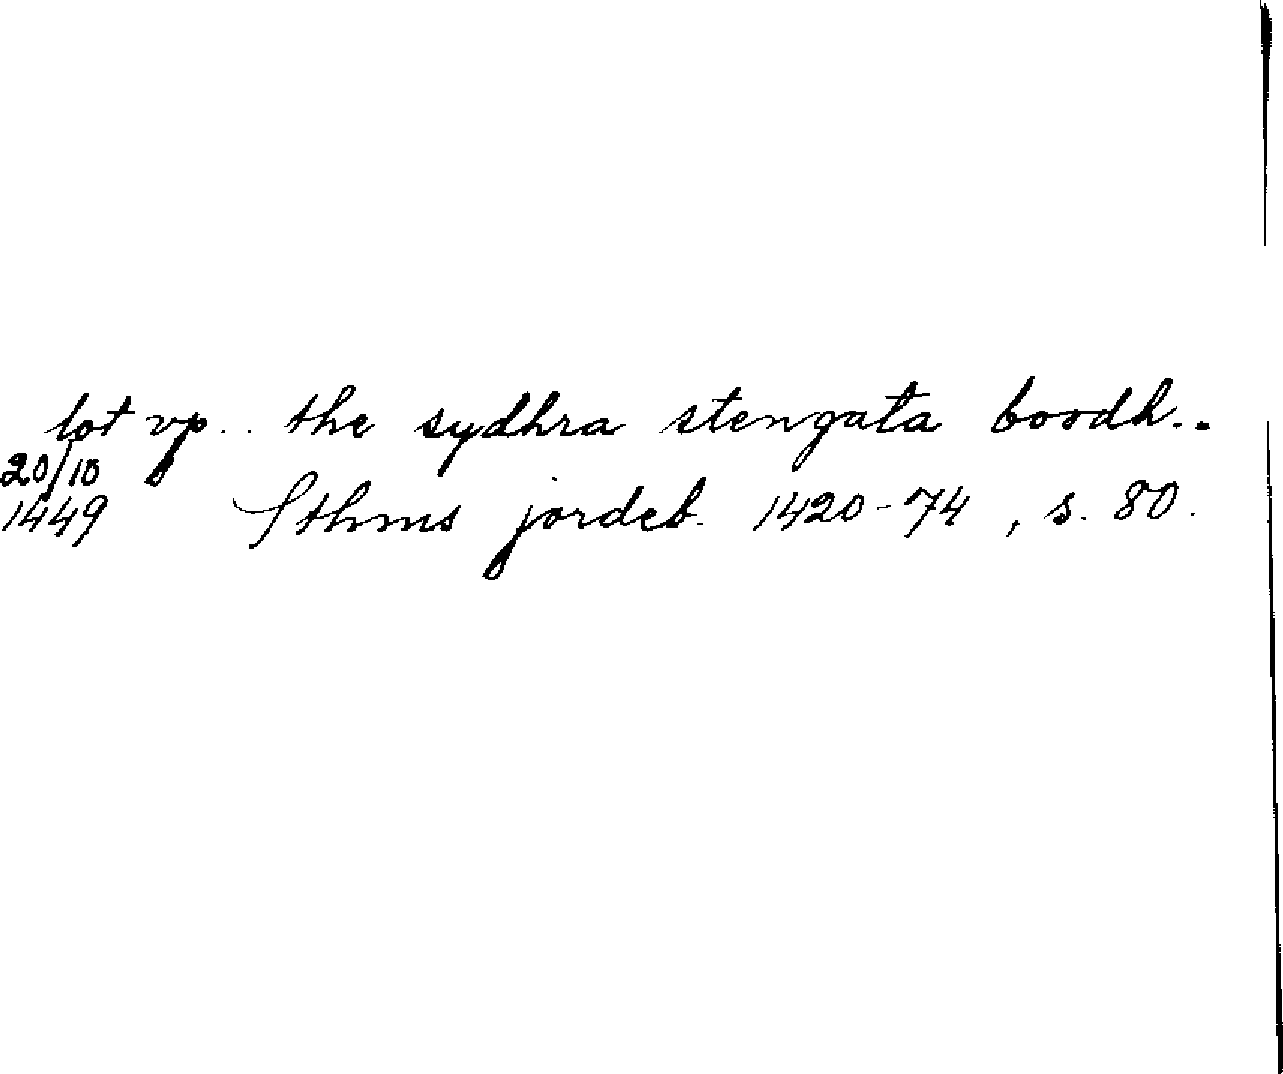 lot vp.. the sydhra stengata boodh..
20/10
1449 Sthms jordeb. 1420-74, s. 80.